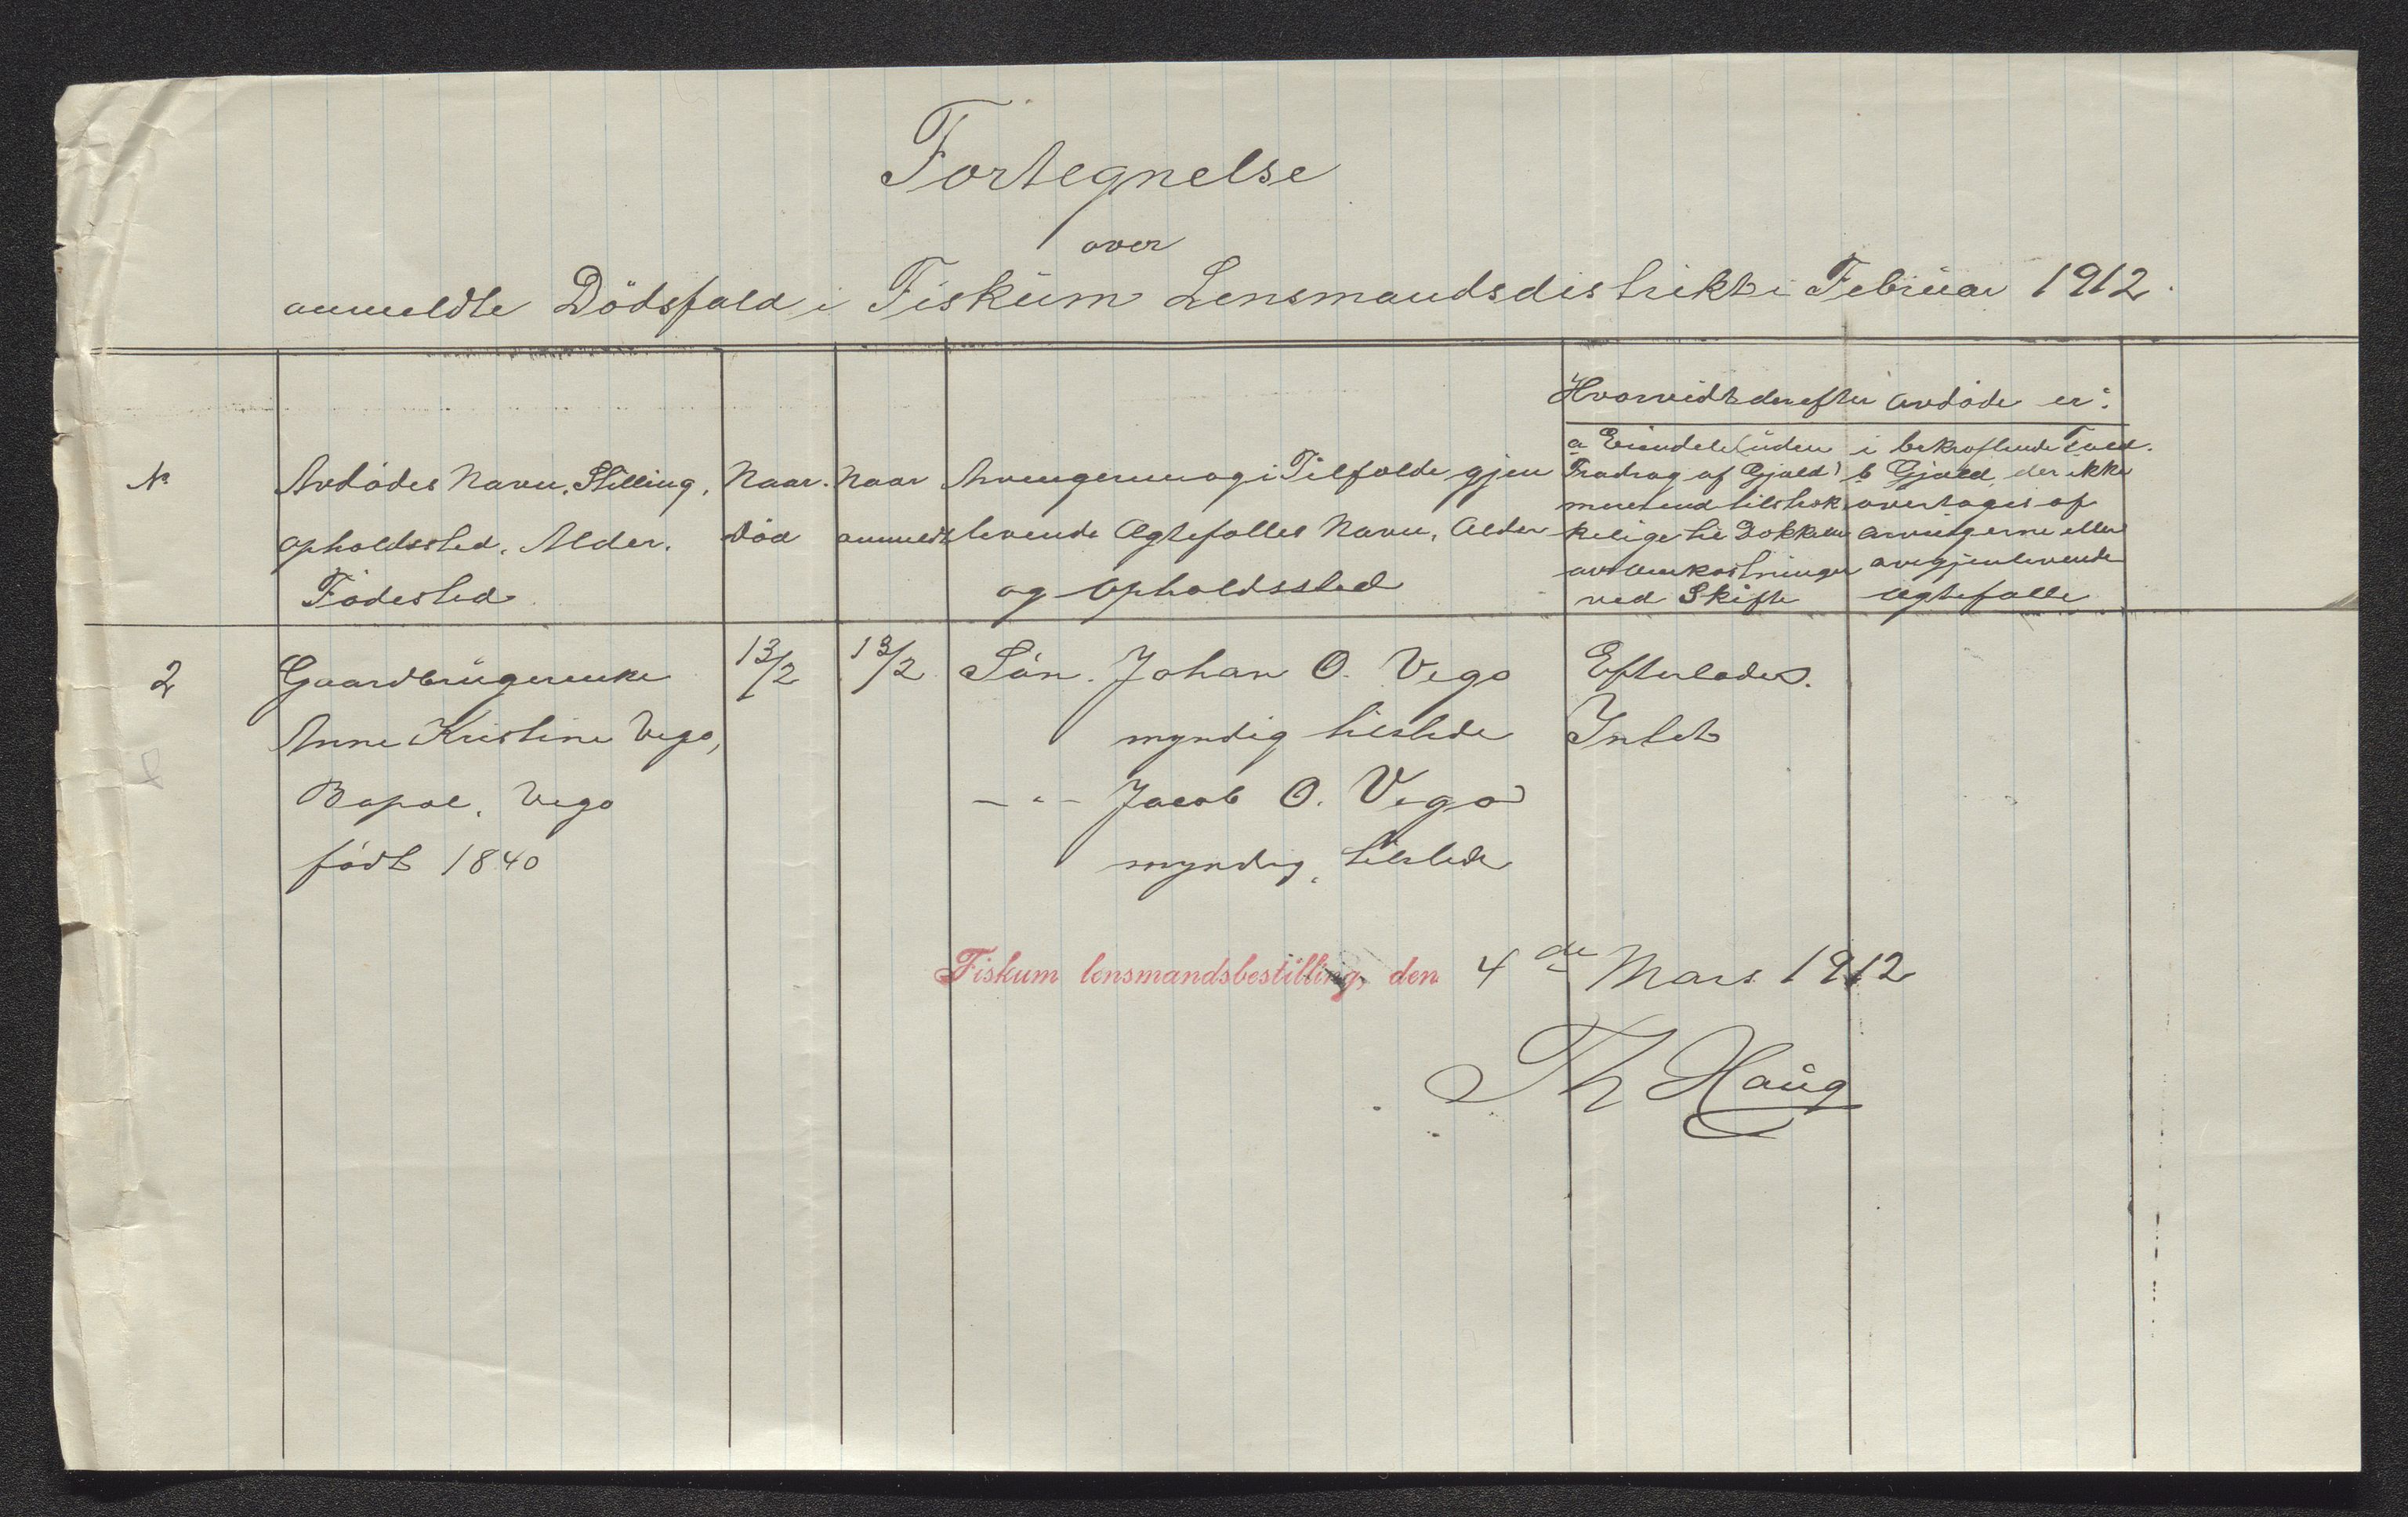 Fortegnelse
over
anmeldte Dödsfald i Fiskum Lensmandsdistrikt i Februar 1912.
No
Avdödes Navn, Stilling,
Opholdssted, Alder.
Födested
Naar
död
Naar
anmeldt
Arvingernes og i Tilfælde gjen
levende Ægtefælles Navn, Alder
og Opholdssted
Hvorvidt der efter avdöde er:
a Eiendele (uden
Fradrag af Gjæld)
mere end tilstræk
kelige til Dækkelse
av Omkostninger
ved Skifte
i bekræftende Fald.
b Gjæld, der ikke
overtages af
Arvingerne eller
av gjenlevende
Ægtefælle
2
Gaardbrugerenke
Anne Kristine Vego,
Vego
födt 1840
13/2
13/2
Sön. Johan O. Vego
myndig tilstede
-"- Jacob O. Vego
myndig, tilstede
Efterlades.
Intet
Fiskum lensmandsbestilling, den 4de Mars 1912
Th Haug